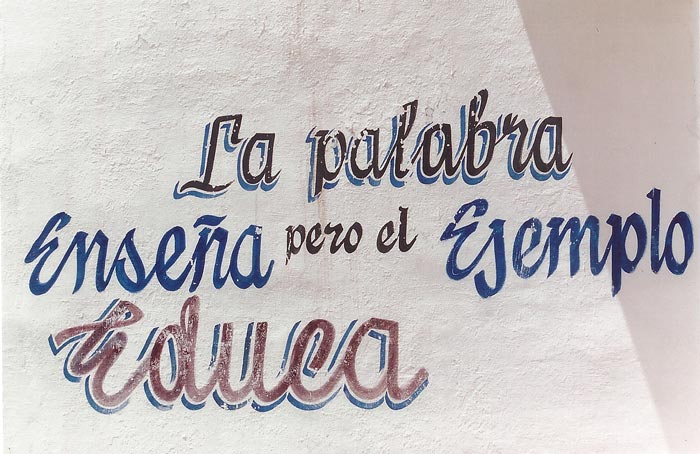 La palabra
Enseña pero el Ejemplo
Educa